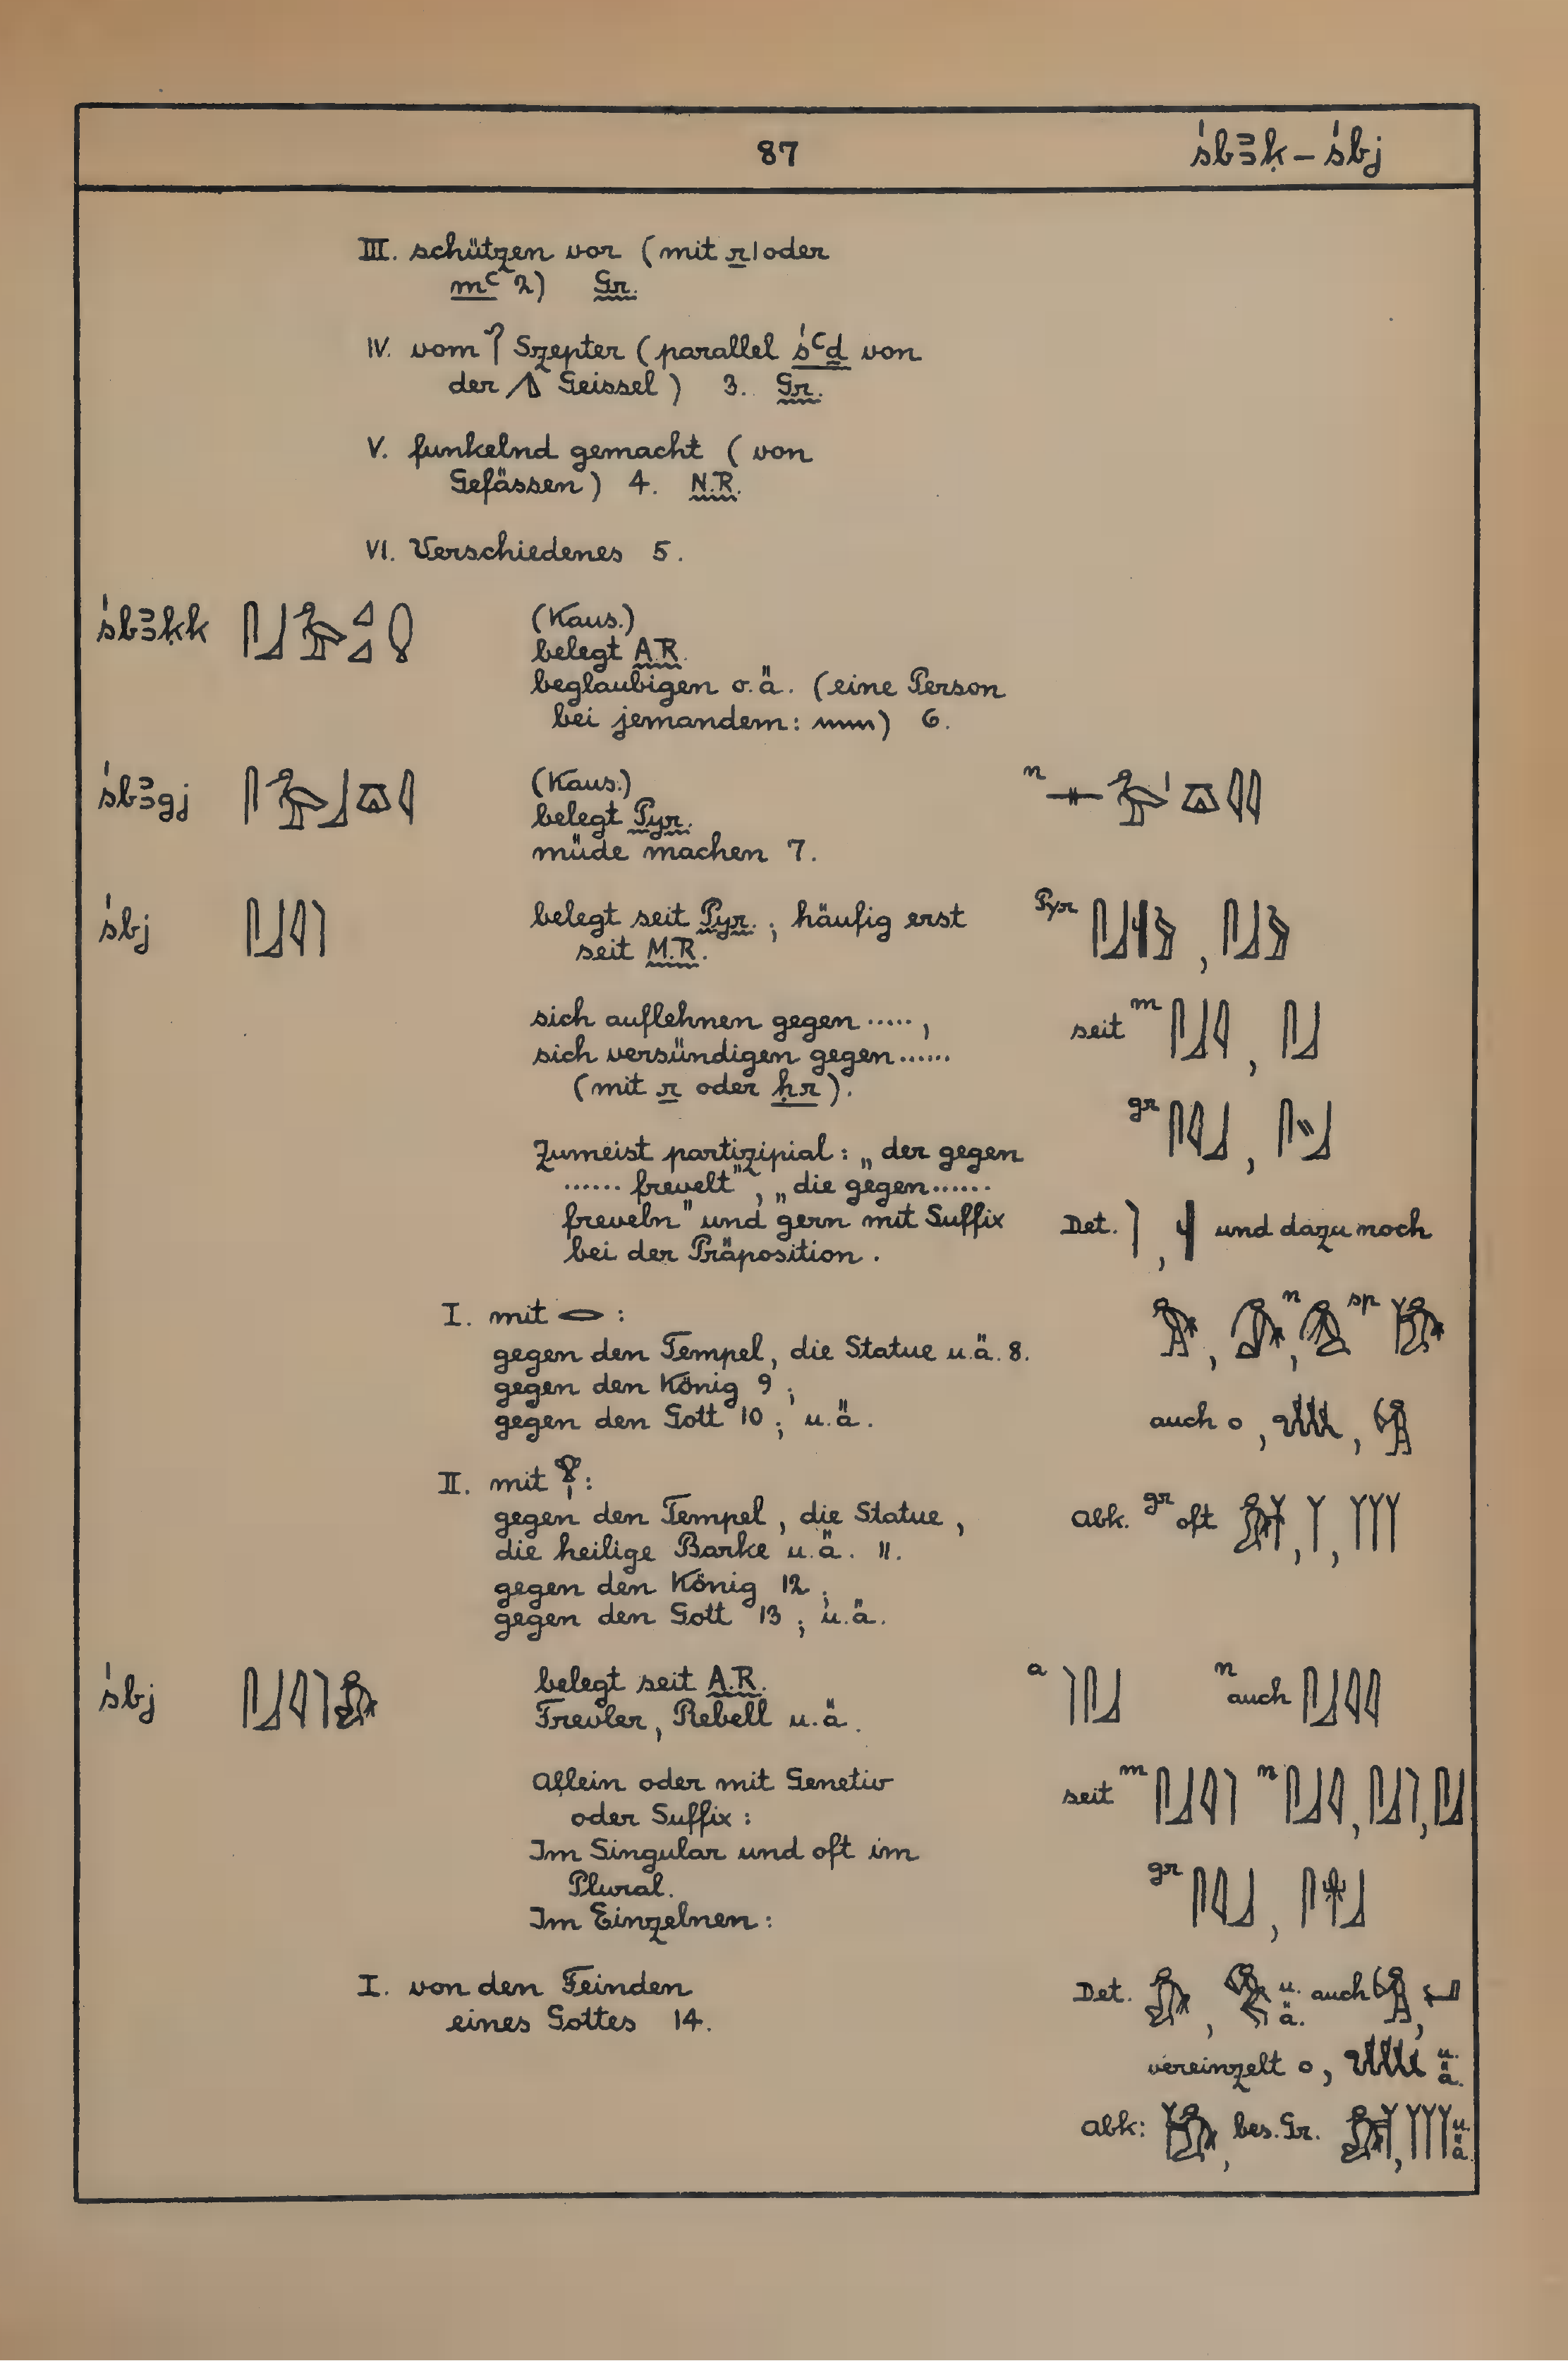 87
śbꜣḳ – śbj
III. schützen vor (mit r 1 oder
mꜥ 2) Gr.
IV. vom 𓋾 Szepter (parallel śꜥḏ von
der 𓌅 Geissel) 3. Gr.
V. funkelnd gemacht (von
Gefässen) 4. N.R.
VI. Verschiedenes 5.
śbꜣḳḳ 𓋴𓃀𓅡𓈎𓈎
(Kaus.)
belegt A.R.
beglaubigen o.ä. (eine Person
bei jemandem: 𓈖) 6.
śbꜣgj 𓋴𓅡𓃀𓎼𓇋
(Kaus.)
belegt Pyr.
müde machen 7.
n 𓊃𓅡𓏤𓎼𓇋𓇋
śbj 𓋴𓃀𓇋𓌙
belegt seit Pyr.; häufig erst
seit M.R.
Pyr 𓋴𓃀
sich auflehnen gegen .....,
sich versündigen gegen ......
(mit r oder ḥr).
seit m 𓋴𓃀𓇋, 𓋴𓃀
gr 𓋴𓇋𓃀, 𓋴𓏭𓃀
Zumeist partizipial: „der gegen
...... frevelt", „die gegen ......
freveln" und gern mit Suffix
bei der Präposition.
Det. 𓌙, und dazu noch
I. mit 𓂋 :
gegen den Tempel, die Statue u.ä. 8.
gegen den König 9;
gegen den Gott 10; u.ä.
n sp
auch o,
II. mit 𓁷𓏤:
gegen den Tempel, die Statue,
die heilige Barke u.ä. 11.
gegen den König 12;
gegen den Gott 13; u.ä.
Abk. gr oft
śbj 𓋴𓃀𓇋𓌙𓀏
belegt seit A.R.
Frevler, Rebell u.ä.
a 𓌙𓋴𓃀 n auch 𓋴𓃀𓇋𓇋
Allein oder mit Genetiv
oder Suffix:
Im Singular und oft im
Plural.
Im Einzelnen:
seit m 𓋴𓃀𓇋𓌙 n 𓋴𓃀𓇋, 𓋴𓃀𓌙, 𓋴𓃀
gr 𓋴𓇋𓃀, 𓋴𓃀
I. von den Feinden
eines Gottes 14.
Det. u.ä. auch
vereinzelt o, u.ä.
Abk: bes. Gr. u.ä.